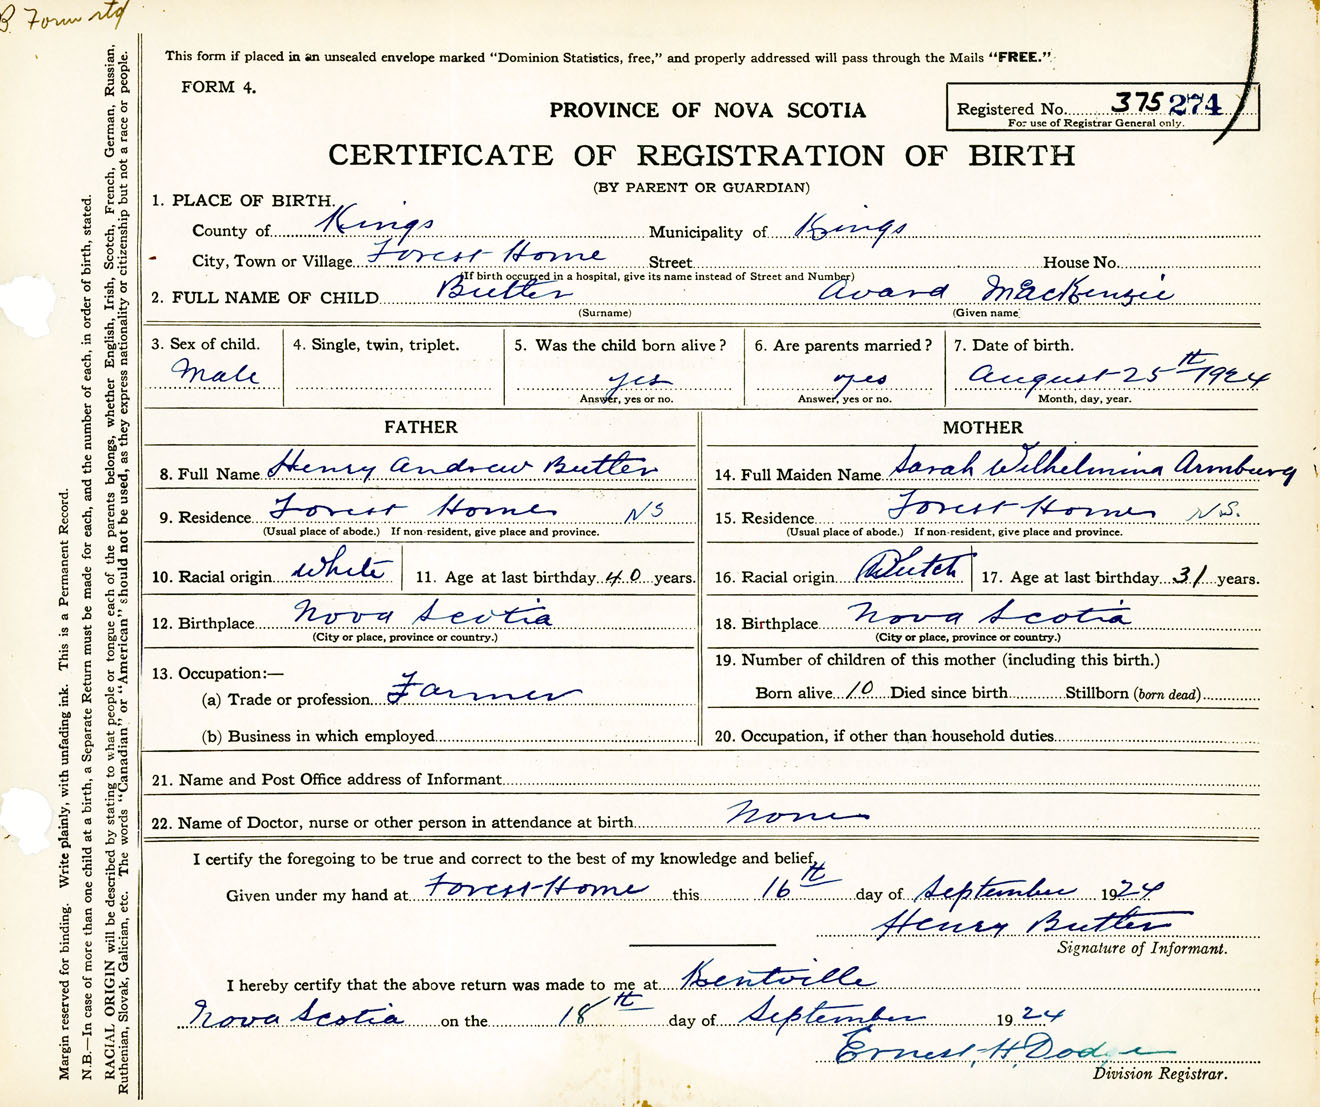 B. Form rtd
This form if placed in an unsealed envelope marked "Dominion Statistics, free," and properly addressed will pass through the Mails "FREE."
FORM 4.
PROVINCE OF NOVA SCOTIA
Registered No. 375 274
For use of Registrar General only.
CERTIFICATE OF REGISTRATION OF BIRTH
(BY PARENT OR GUARDIAN)
1. PLACE OF BIRTH.
County of Kings Municipality of Kings
City, Town or Village Forest Home Street House No.
(If birth occurred in a hospital, give its name instead of Street and Number)
2. FULL NAME OF CHILD Butler Avard MacKenzie
(Surname) (Given name)
3. Sex of child. 4. Single, twin, triplet. 5. Was the child born alive? 6. Are parents married? 7. Date of birth.
Male yes yes August 25th 1924
Answer, yes or no. Answer, yes or no. Month, day, year.
FATHER MOTHER
8. Full Name Henry Andrew Butler 14. Full Maiden Name Sarah Wilhelmina Armburg
9. Residence Forest Home NS 15. Residence Forest Home N.S.
(Usual place of abode.) If non-resident, give place and province. (Usual place of abode.) If non-resident, give place and province.
10. Racial origin White 11. Age at last birthday 40 years. 16. Racial origin Dutch 17. Age at last birthday 31 years.
12. Birthplace Nova Scotia 18. Birthplace Nova Scotia
(City or place, province or country.) (City or place, province or country.)
13. Occupation:— 19. Number of children of this mother (including this birth.)
(a) Trade or profession Farmer Born alive 10 Died since birth Stillborn (born dead)
(b) Business in which employed 20. Occupation, if other than household duties
21. Name and Post Office address of Informant
22. Name of Doctor, nurse or other person in attendance at birth None
I certify the foregoing to be true and correct to the best of my knowledge and belief,
Given under my hand at Forest Home this 16th day of September 1924
Henry Butler
Signature of Informant.
I hereby certify that the above return was made to me at Kentville
Nova Scotia on the 18th day of September 1924
Ernest, H, Dodge
Division Registrar.
Margin reserved for binding. Write plainly, with unfading ink. This is a Permanent Record.
N.B.—In case of more than one child at a birth, a Separate Return must be made for each, and the number of each, in order of birth, stated.
RACIAL ORIGIN will be described by stating to what people or tongue each of the parents belongs, whether English, Irish, Scotch, French, German, Russian,
Ruthenian, Slovak, Galician, etc. The words "Canadian" or "American" should not be used, as they express nationality or citizenship but not a race or people.